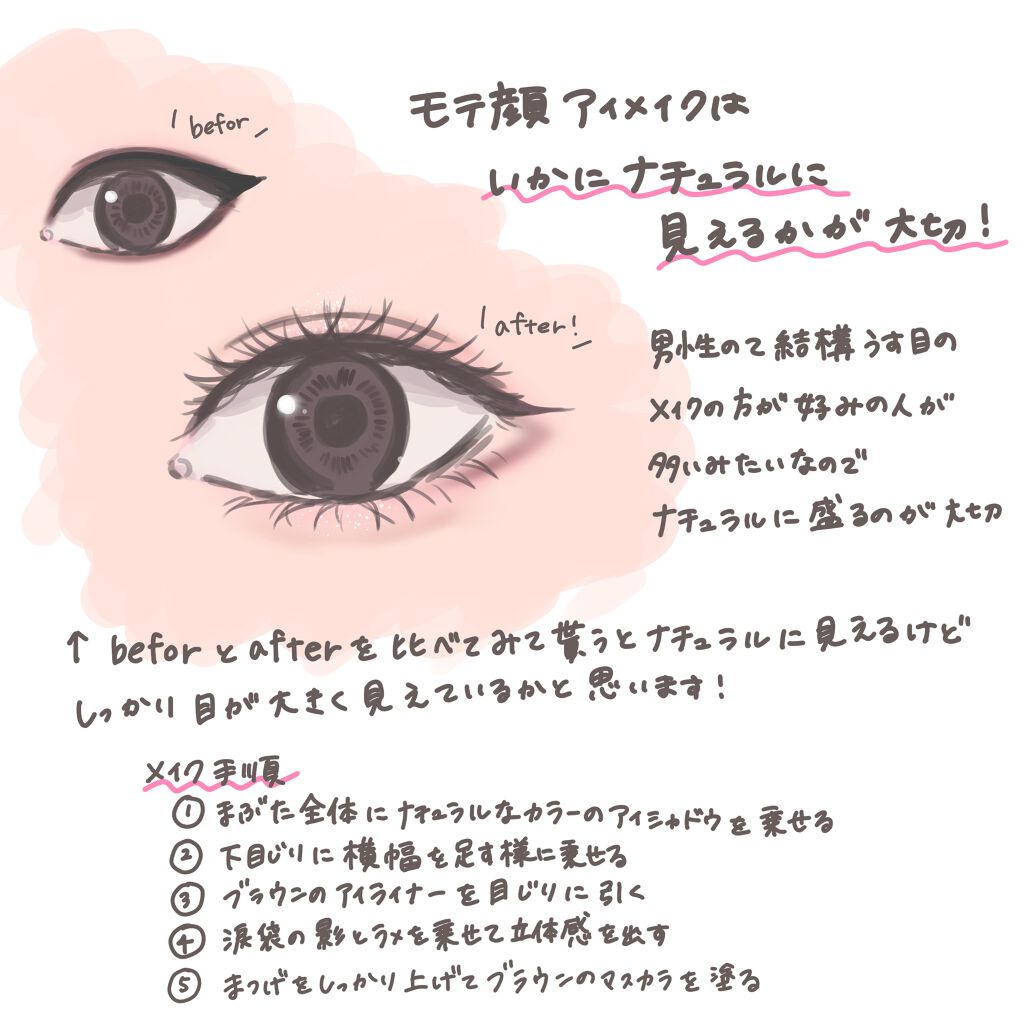 befor
モテ顔 アイメイクは
いかに ナチュラルに
見えるかが 大切!
after!
男性のて 結構 うす目の
メイクの方が 好みの人が
多いみたいなので
ナチュラルに 盛るのが 大切
↑ beforとafterを比べてみて貰うとナチュラルに見えるけど
しっかり目が大きく見えているかと思います!
メイク手順
① まぶた全体にナチュラルなカラーのアイシャドウを乗せる
② 下目じりに横幅を足す様に乗せる
③ ブラウンのアイライナーを目じりに引く
④ 涙袋の影とラメを乗せて立体感を出す
⑤ まつげをしっかり上げてブラウンのマスカラを塗る